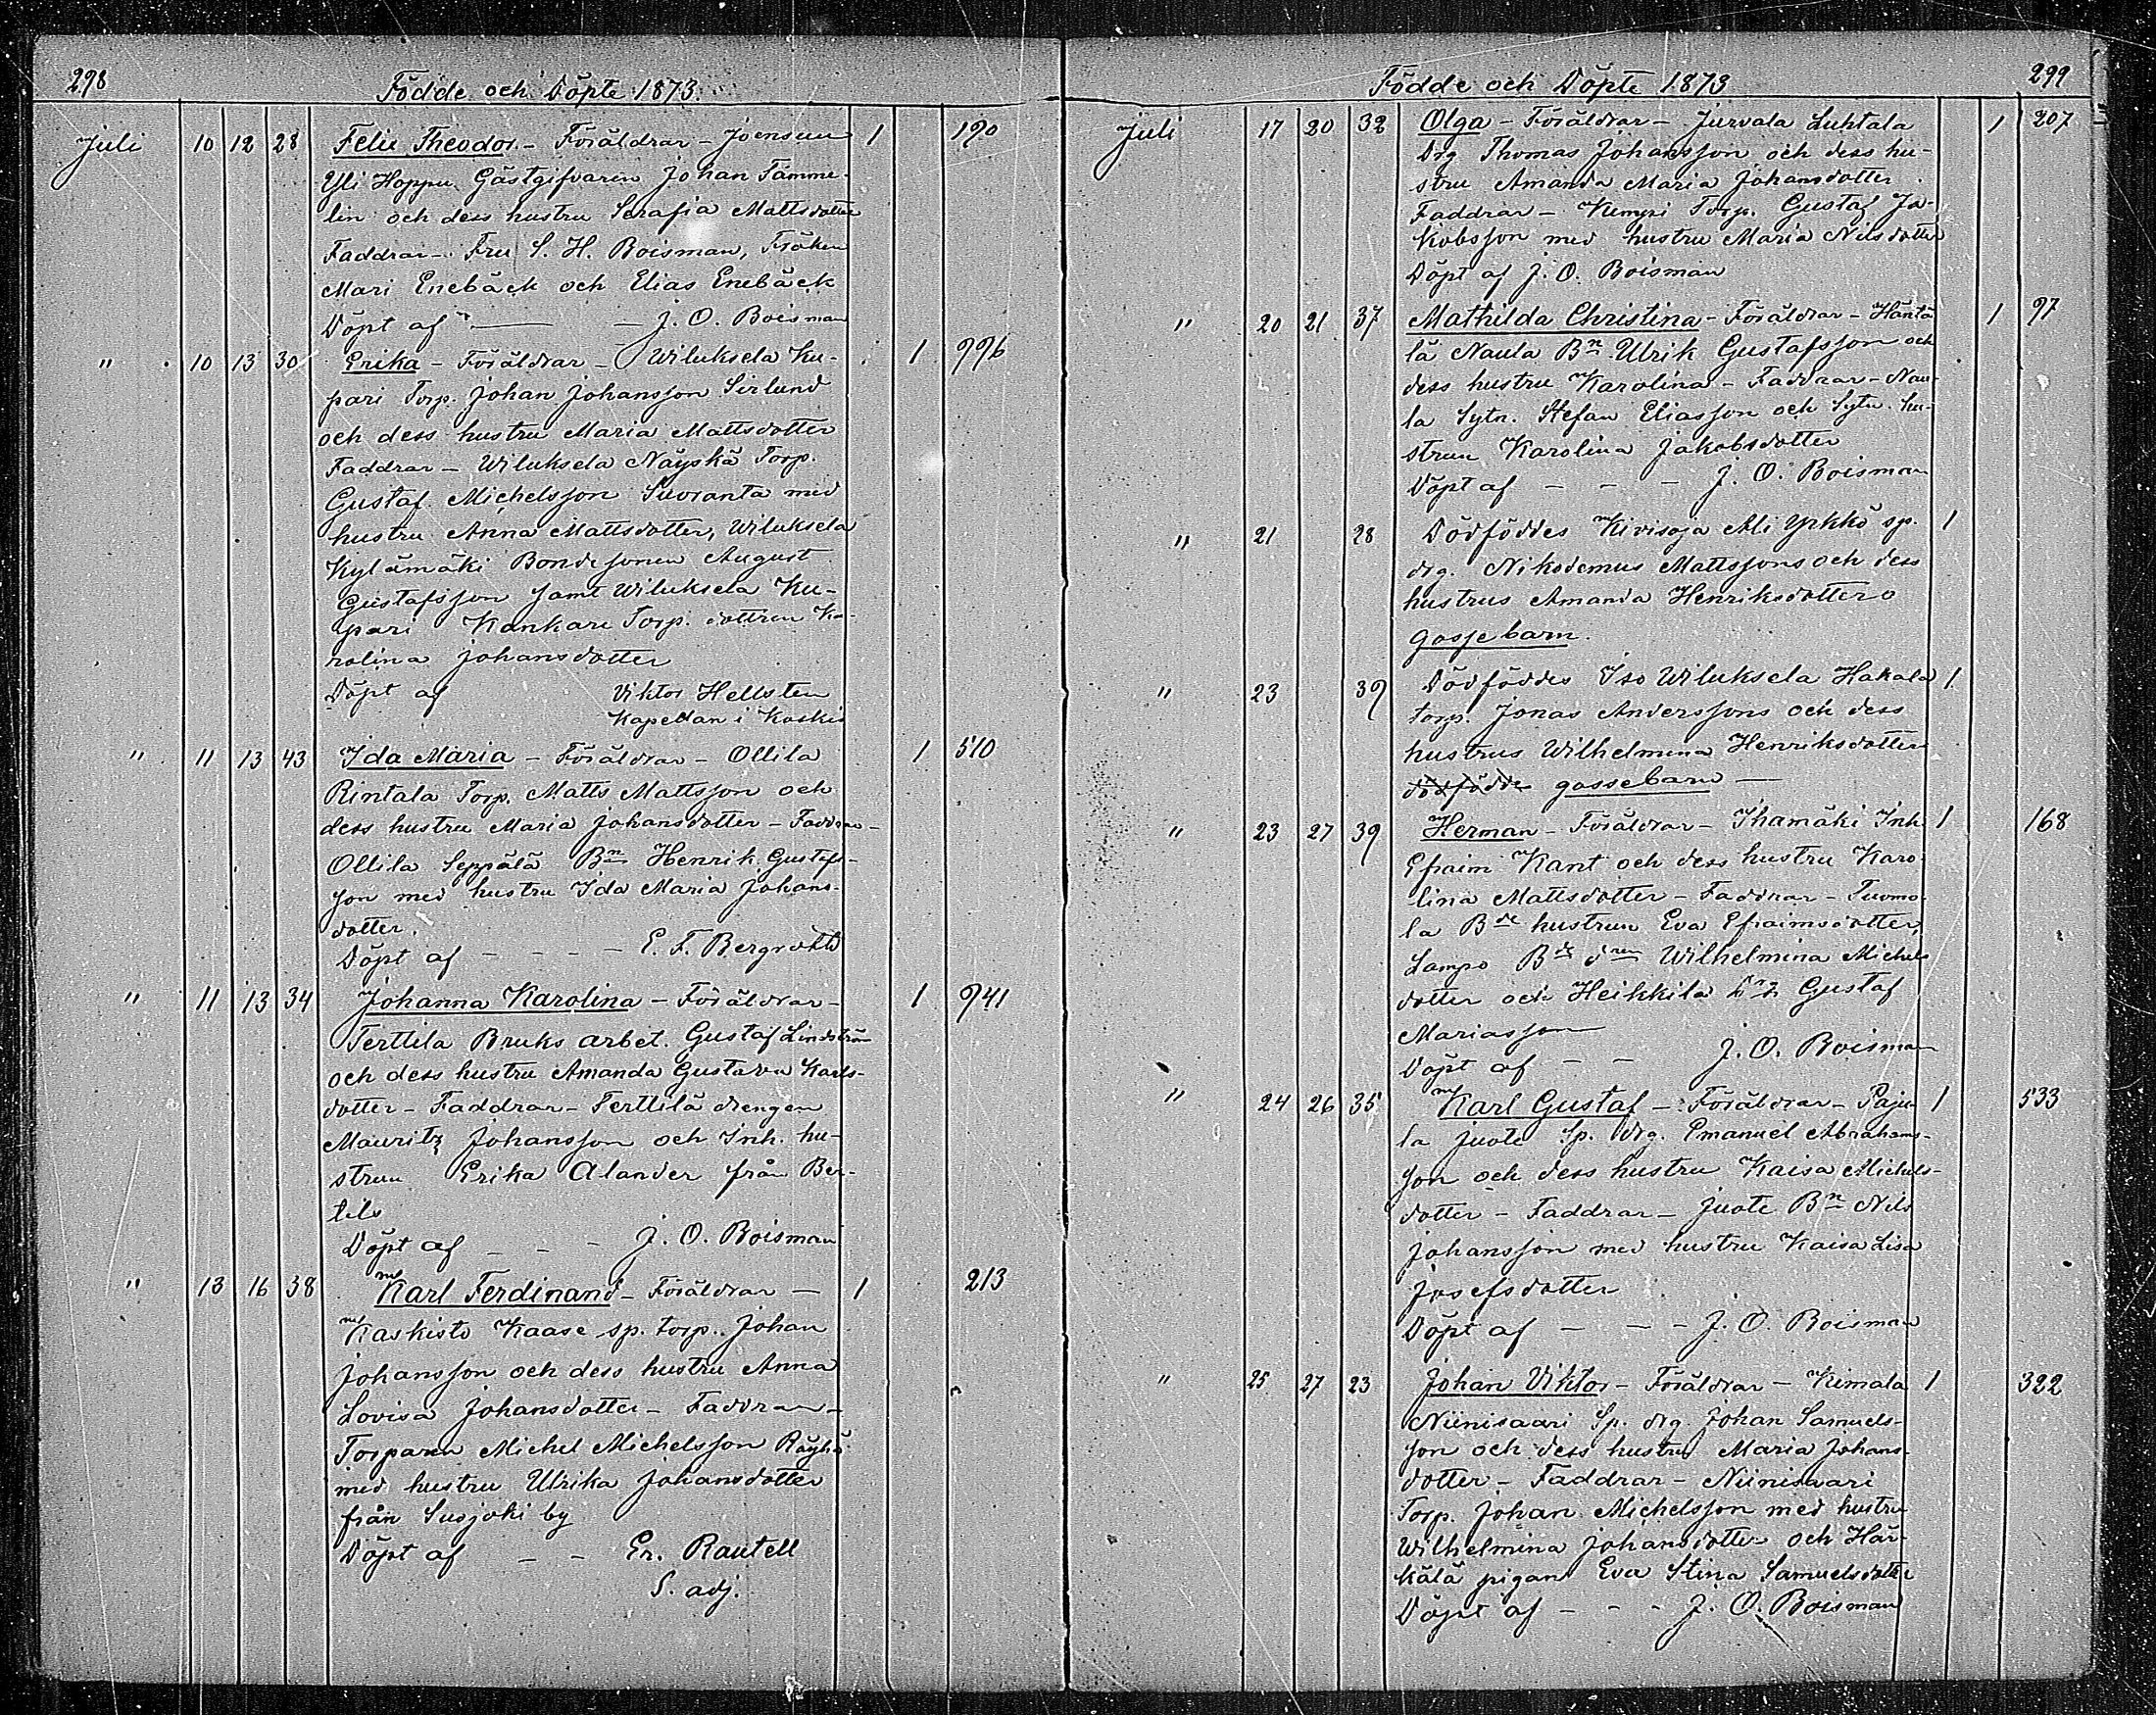 298
Födde och Döpte 1873.
Juli 10 12 28 Felix Theodor. - Föräldrar - Joensuu 1 190
Yli Hoppu Gästgifvaren Johan Tamme-
lin och dess hustru Serafia Mattsdotter
Faddrar - Fru S. H. Boisman, Fröken
Mari Enebäck och Elias Enebäck
Döpt af - J. O. Boisman
" 10 13 30 Erika - Föräldrar - Wiluksela Ku- 1 996
pari Torp. Johan Johansson Sirlund
och dess hustru Maria Mattsdotter
Faddrar - Wiluksela Näyskä Torp.
Gustaf Michelsson Suoranta med
hustru Anna Mattsdotter, Wiluksela
Kylämäki Bondesonen August
Gustafsson samt Wiluksela Ku-
pari Kankare Torp. dottren Ka-
rolina Johansdotter
Döpt af Viktor Hellsten
Kapellan i Koskis
" 11 13 43 Ida Maria - Föräldrar - Ollila 1 510
Rintala Torp. Matts Mattsson och
dess hustru Maria Johansdotter - Faddrar -
Ollila Seppälä Bn Henrik Gustafs-
son med hustru Ida Maria Johans-
dotter.
Döpt af - - - - E. F. Bergroth
" 11 13 34 Johanna Karolina - Föräldrar - 1 941
Terttila Bruks arbet. Gustaf Lindström
och dess hustru Amanda Gustava Karls-
dotter - Faddrar - Terttilä drengen
Mauritz Johansson och Inh. hu-
strun Erika Alander från Ber-
tils
Döpt af - - - J. O. Boisman
" 13 16 38 Karl Ferdinand - Föräldrar - 1 213
Kaskisto Kaase sp. torp. Johan
Johansson och dess hustru Anna
Lovisa Johansdotter - Faddrar -
Torparen Michel Michelsson Räyhä
med hustru Ulrika Johansdotter
från Susjoki by
Döpt af - - Er. Rautell
S. adj.
299
Födde och Döpte 1873
Juli 17 20 32 Olga - Föräldrar - Jurvala Luhtala 1 207
Drg Thomas Johansson och dess hu-
stru Amanda Maria Johansdotter
Faddrar - Kumpi Torp. Gustaf Ja-
kobsson med hustru Maria Nilsdotter
Döpt af J. O. Boisman
" 20 21 37 Mathilda Christina - Föräldrar - Häntä 1 97
lä Naula Bn Ulrik Gustafsson och
dess hustru Karolina - Faddrar - Nau-
la Sytn. Stefan Eliasson och Sytn. hu-
strun Karolina Jakobsdotter
Döpt af - - - J. O. Boisman
" 21 28 Dödföddes Kivisoja Ali Ypkkö sp. 1
drg. Nikodemus Mattssons och dess
hustrus Amanda Henriksdotters
gossebarn.
" 23 39 Dödföddes Iso Wiluksela Hakala 1.
torp. Jonas Anderssons och dess
hustrus Wilhelmina Henriksdotters
dödfödde gossebarn -
" 23 27 39 Herman - Föräldrar - Ihamäki Inh. 1 168
Efraim Kant och dess hustru Karo-
lina Mattsdotter - Faddrar - Tuomo-
la Bde hustrun Eva Efraimsdotter,
Lampo Bde dren Wilhelmina Michels
dotter och Heikkilä Gustaf
Mariasson
Döpt af - - J. O. Boisman
" 24 26 35 Karl Gustaf - Föräldrar - Paju- 1 533
la Juote Sp. drg. Emanuel Abrahams-
son och dess hustru Kaisa Michels-
dotter - Faddrar - Juote Bn Nils
Johansson med hustru Kaisa Lisa
Josefsdotter
Döpt af - - - J. O. Boisman
" 25 27 23 Johan Viktor - Föräldrar - Kimala 1 322
Niinisaari Sp. drg. Johan Samuels-
son och dess hustru Maria Johans-
dotter - Faddrar - Niinisaari
Torp. Johan Michelsson med hustru
Wilhelmina Johansdotter och Här-
kälä pigan Eva Stina Samuelsdotter
Döpt af - - - J. O. Boisman